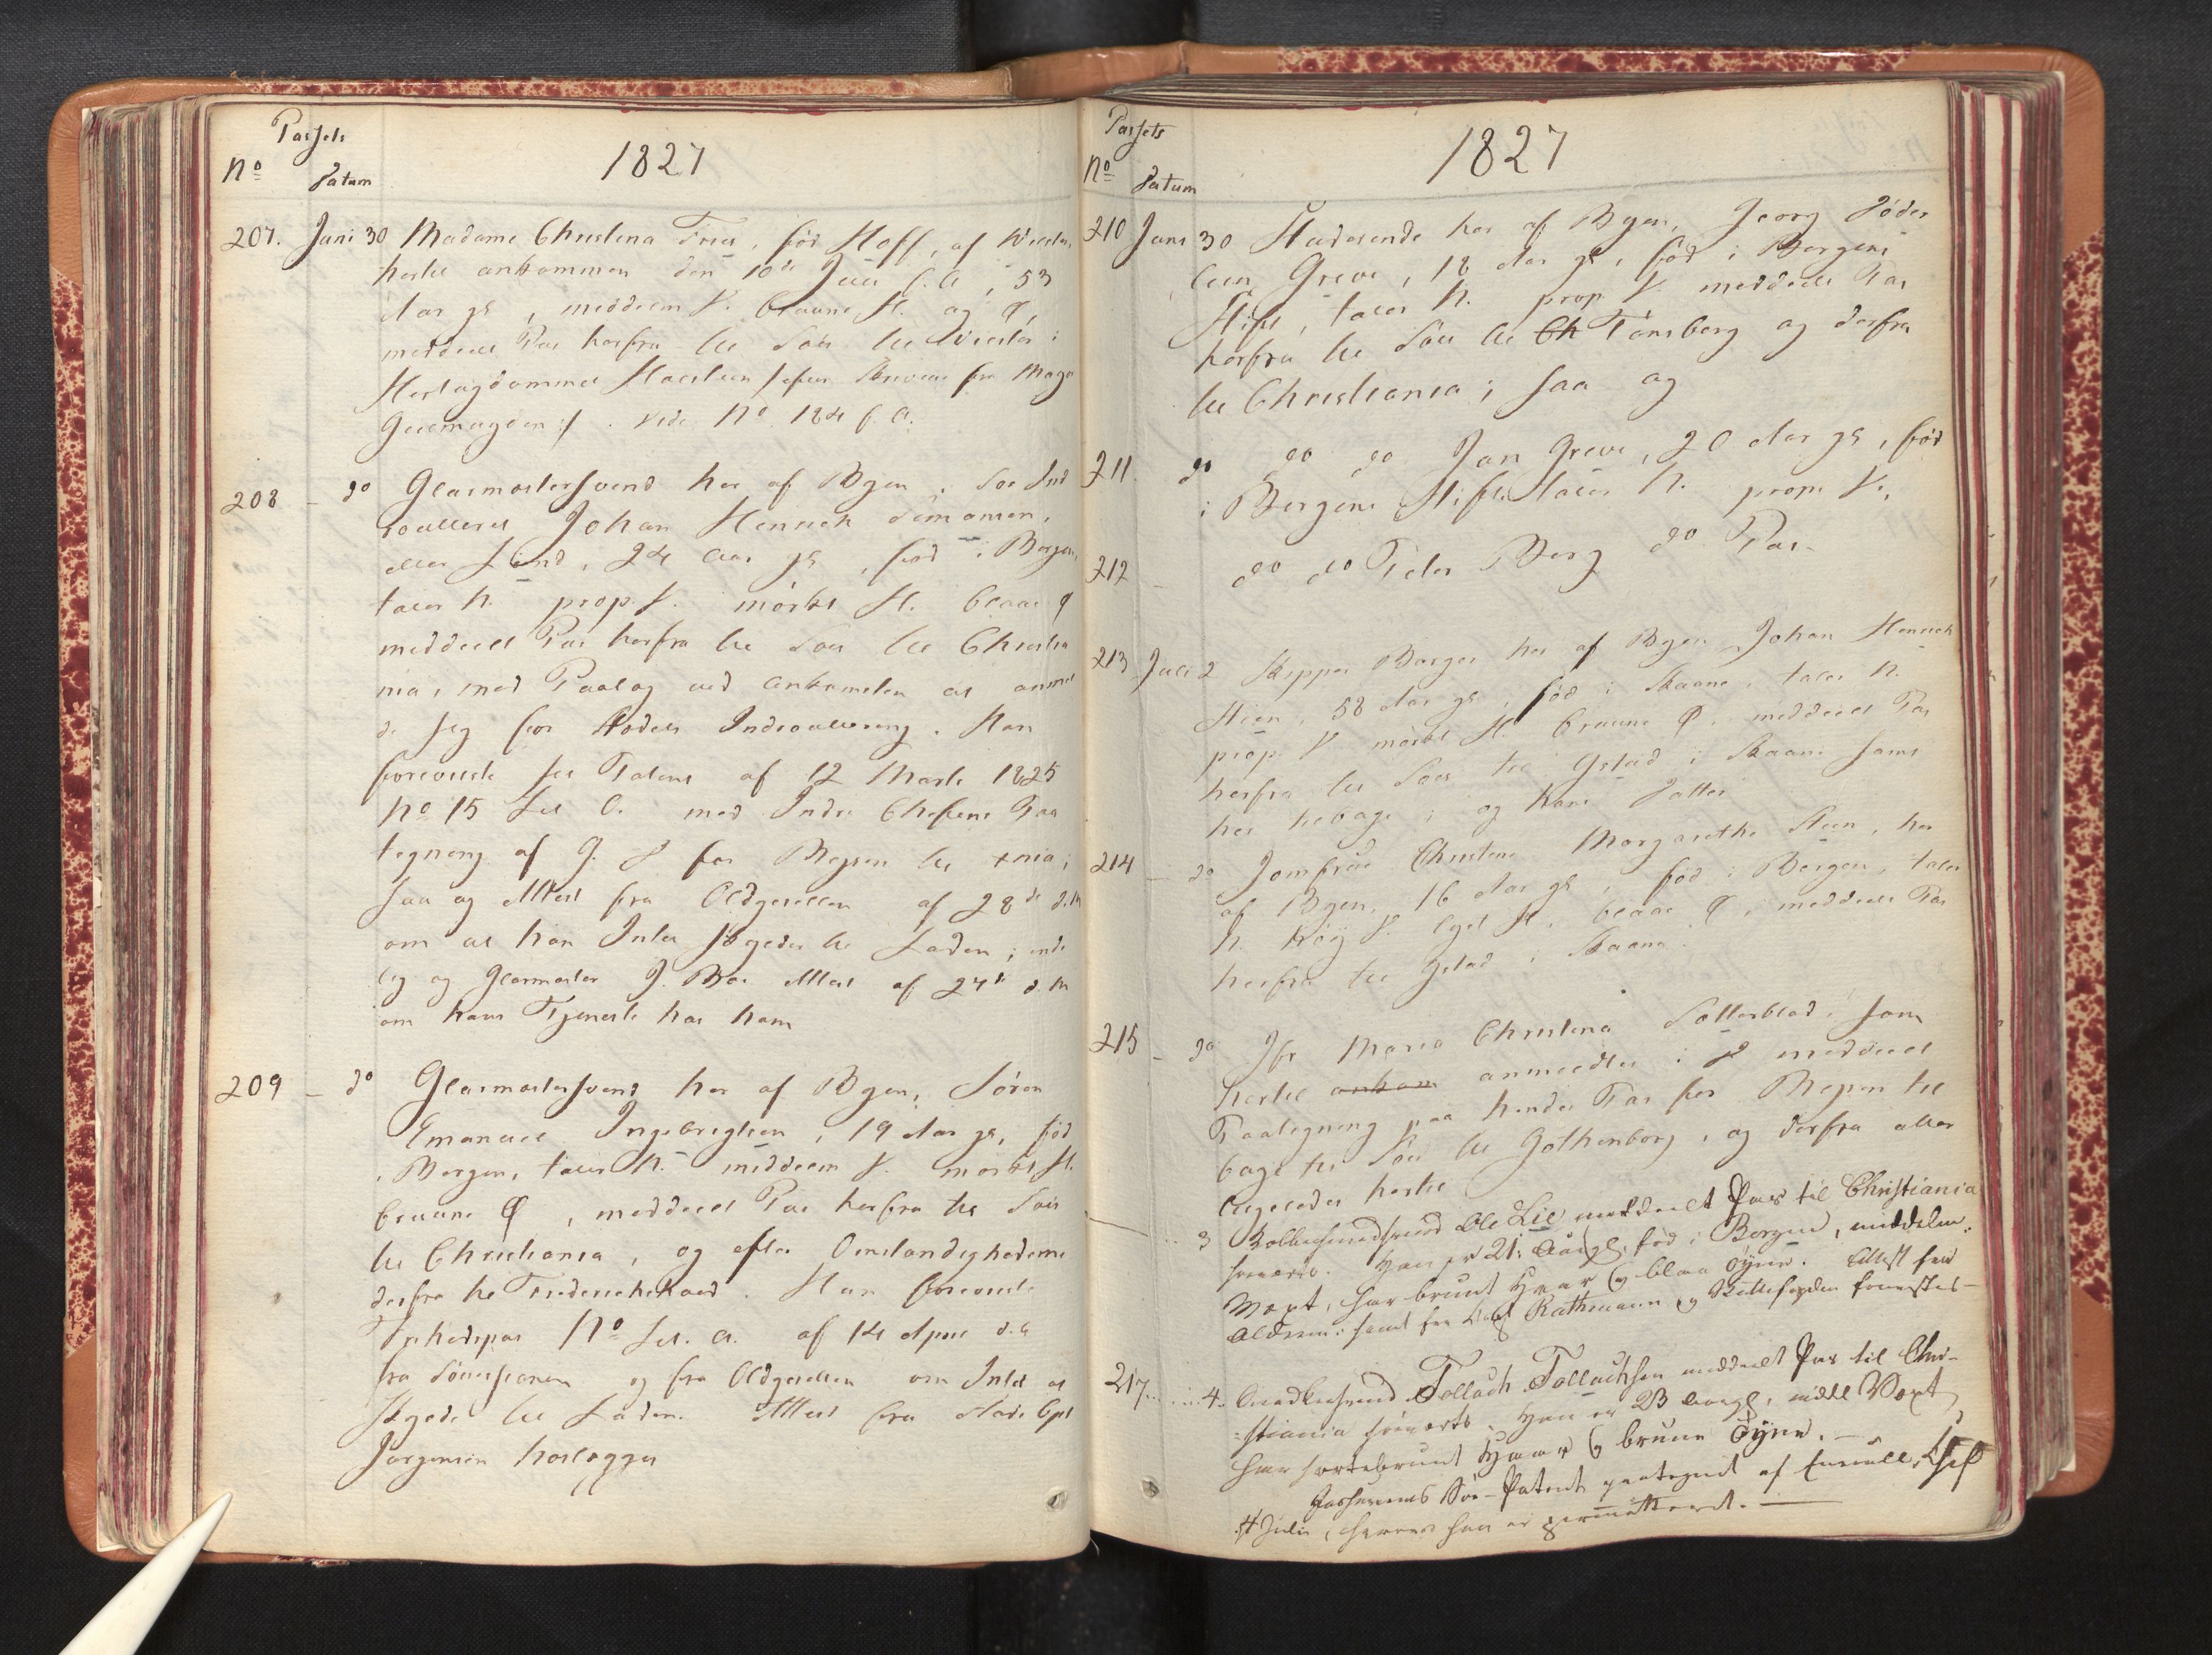 Passets
No Datum
1827
207. Juni 30 Madame Christina Fries, fød Hoff, af
hertil ankommen den 10de Juni f. A, 53
Aar gl, middelm V. bruune H. og Ø,
meddeelt Pas herfra til Søes til
Hertugdømmet Holsteen
. vide No 184 f. A.
208 – do Glarmestersvend her af Byen, Søe Ind
roulleret Johan Henrich Simonsen,
eller Lind, 24 Aar gl, fød i Bergen,
taler N. prop. V. mørkt H. blaae Ø
meddeelt Pas herfra til Søes til Christia
nia, med Paalæg ved Ankomsten at anmel
de sig for Stedets Indroullering. Han
foreviiste sit Patent af 12 Marts 1825
No 15 Lit C. med Indr: Chefens Paa
tegning af G. D for Reysen til xnia;
saa og Attest fra Oldgesellen af 28de d.M
om at han Intet skyldes til Laden; ende
lig og Glarmester J. Attest af 27de d. M
om hans Tjeneste hos ham
209 – do Glarmestersvend her af Byen, Sören
Emanuel Ingebrigtsen, 19 Aar gl, fød
i Bergen, taler N. middelm V. mørkt H.
bruune Ø, meddeelt Pas herfra til Søes
til Christiania, og efter Omstændighederne
derfra til Friderichshald. Han foreviiste
No Lit. A. af 14 April d. A
fra og fra Oldgesellen om Intet at
skylde til Laden. Attest fra
Jørgensen
Passets
No Datum
1827
210 Juni 30 Studerende her af Byen, Georg
Greve, 18 Aar gl, fød i Bergens
Stift, taler N. prop V. meddeelt Pas
herfra til Søes til Ch Tønsberg og derfra
til Christiania; saa og
211. do do do Jan Greve, 20 Aar gl, fød
i Bergens Stift taler N. prop. V.,
212 – do do Peter Berg do Pas.
213 Juli 2 Skipper Borger her af Byen Johan Henrich
Steen, 58 Aar gl, fød i Skaane, taler N.
prop. V mørkt H. bruune Ø. meddeelt Pas
herfra til Søes til Ystad i Skaane samt
her tilbage; og hans Datter
214 – do Jomfrue Christine Margarethe Steen, her
af Byen, 16 Aar gl, fød i Bergen, taler
N. høy V. lyst H. blaae Ø, meddeelt Pas
herfra til Ystad i Skaane.
215 – do Jfr Maria Christina Sätterblad, som
hertil ankom anmeldte i D meddeelt
Paategning paa hendes Pas for Reysen til
bage til Søes til Gothenborg, og derfra atter
ligeledes hertil
3 Ole Lie meddeelt Pas til Christiania
søeværts. Han er 21 Aar gl, fød i Bergen, middelm.
Vext, har bruunt Haar og blaa Øyne. Attest fra
Olderm: samt fra Rathmann og forevistes –
217. 4. Tollach Tollachsen meddeelt Pas til Chri-
=stiania søeværts. Han er 23 Aar gl, midd Vext
har sortebrunt Haar og brune Øyne. –
Søe-Patent paategnet af Enroull. Chef
4 Juli, hvorved han er permitteret. –